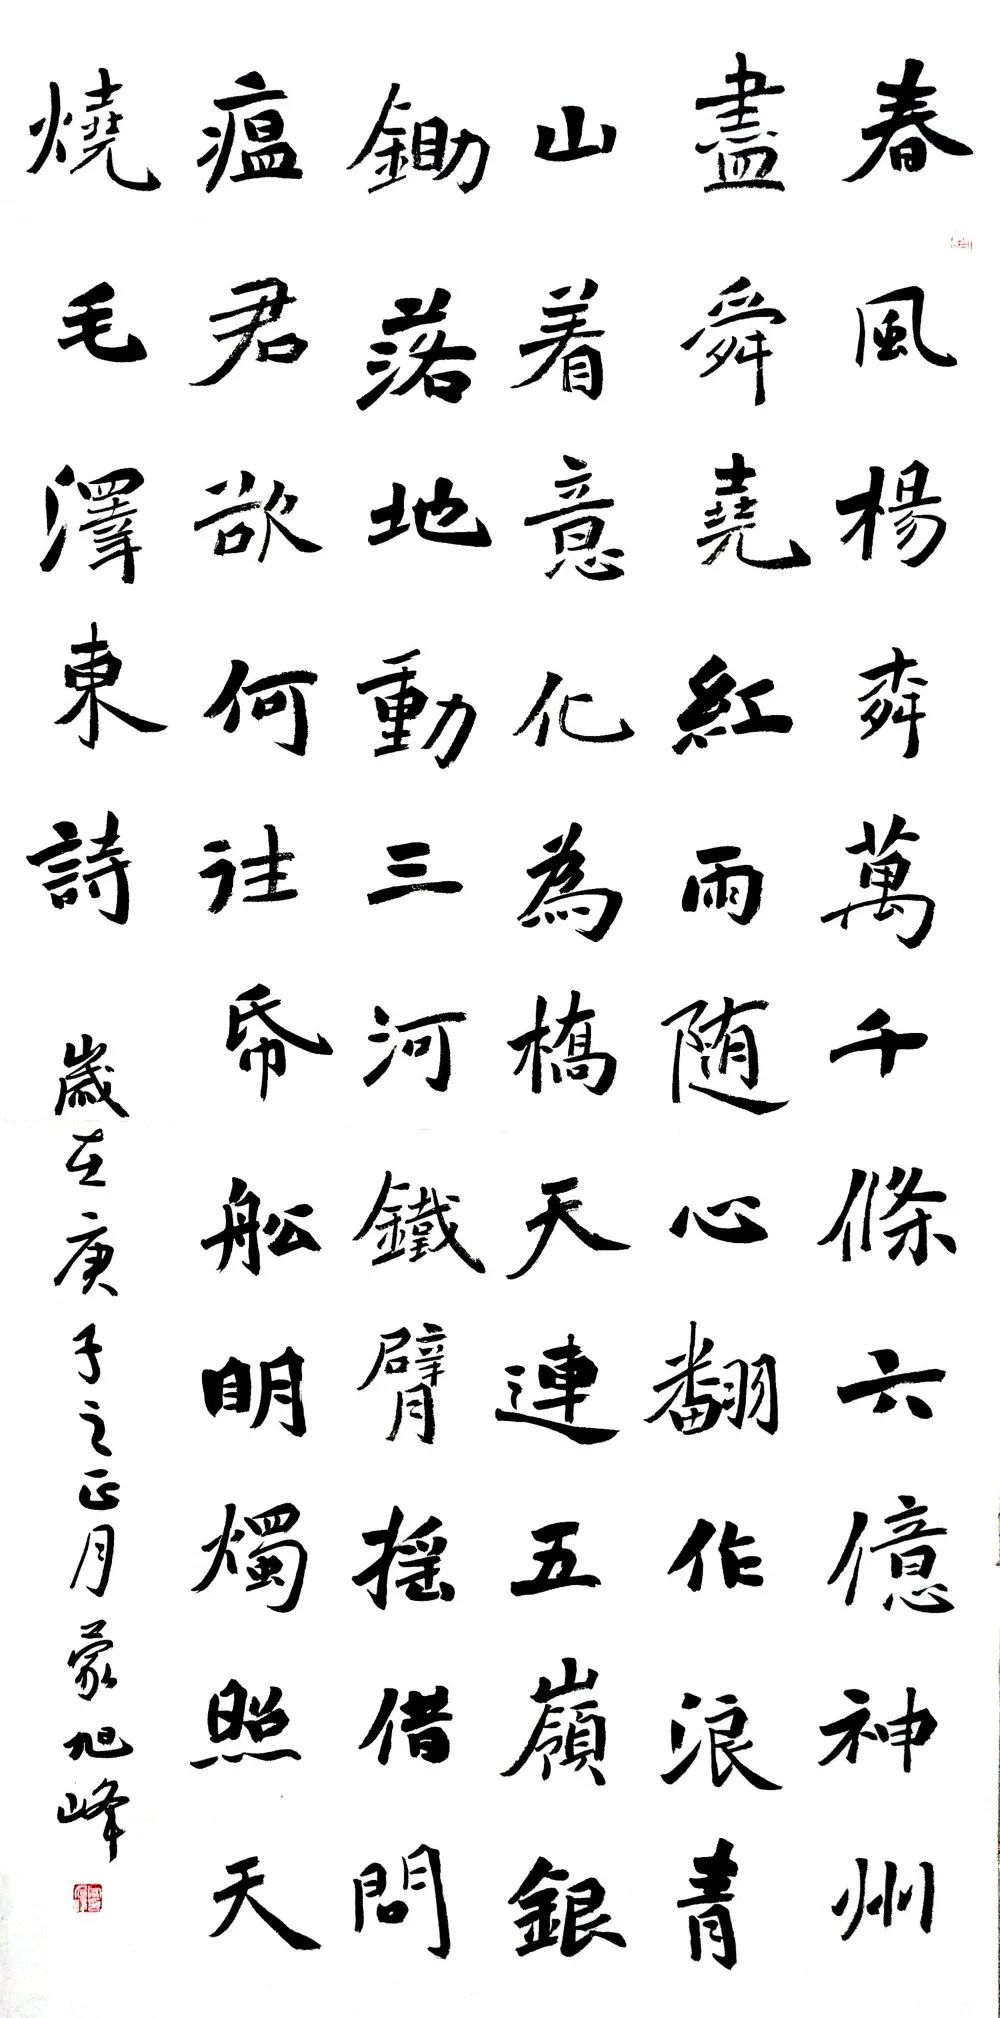 春風楊柳萬千條六億神州
盡舜堯紅雨随心翻作浪青
山着意化為橋天連五嶺銀
鋤落地動三河鐵臂摇借問
瘟君欲何往帋舩明燭照天
燒毛澤東詩 歲在庚子之正月蒙旭峰